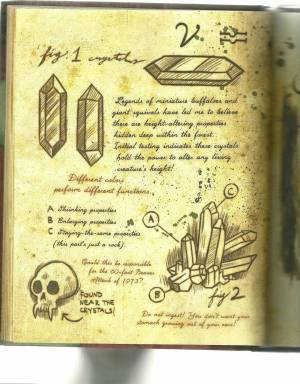 V
fig. 1 crystals
Legends of miniature buffaloes and
giant squirrels have led me to believe
there are height-altering properties
hidden deep within the forest.
Initial testing indicates these crystals
hold the power to alter any living
creature's height!
Different colors
perform different functions.
A Shrinking properties
B Enlarging properties
C Staying-the-same properties
(this part's just a rock).
Could this be responsible
for the 50-foot Beaver
Attack of 1973?
FOUND
NEAR THE
CRYSTALS!
A
B
C
fig 2
Do not ingest! You don't want your
stomach growing out of your nose!